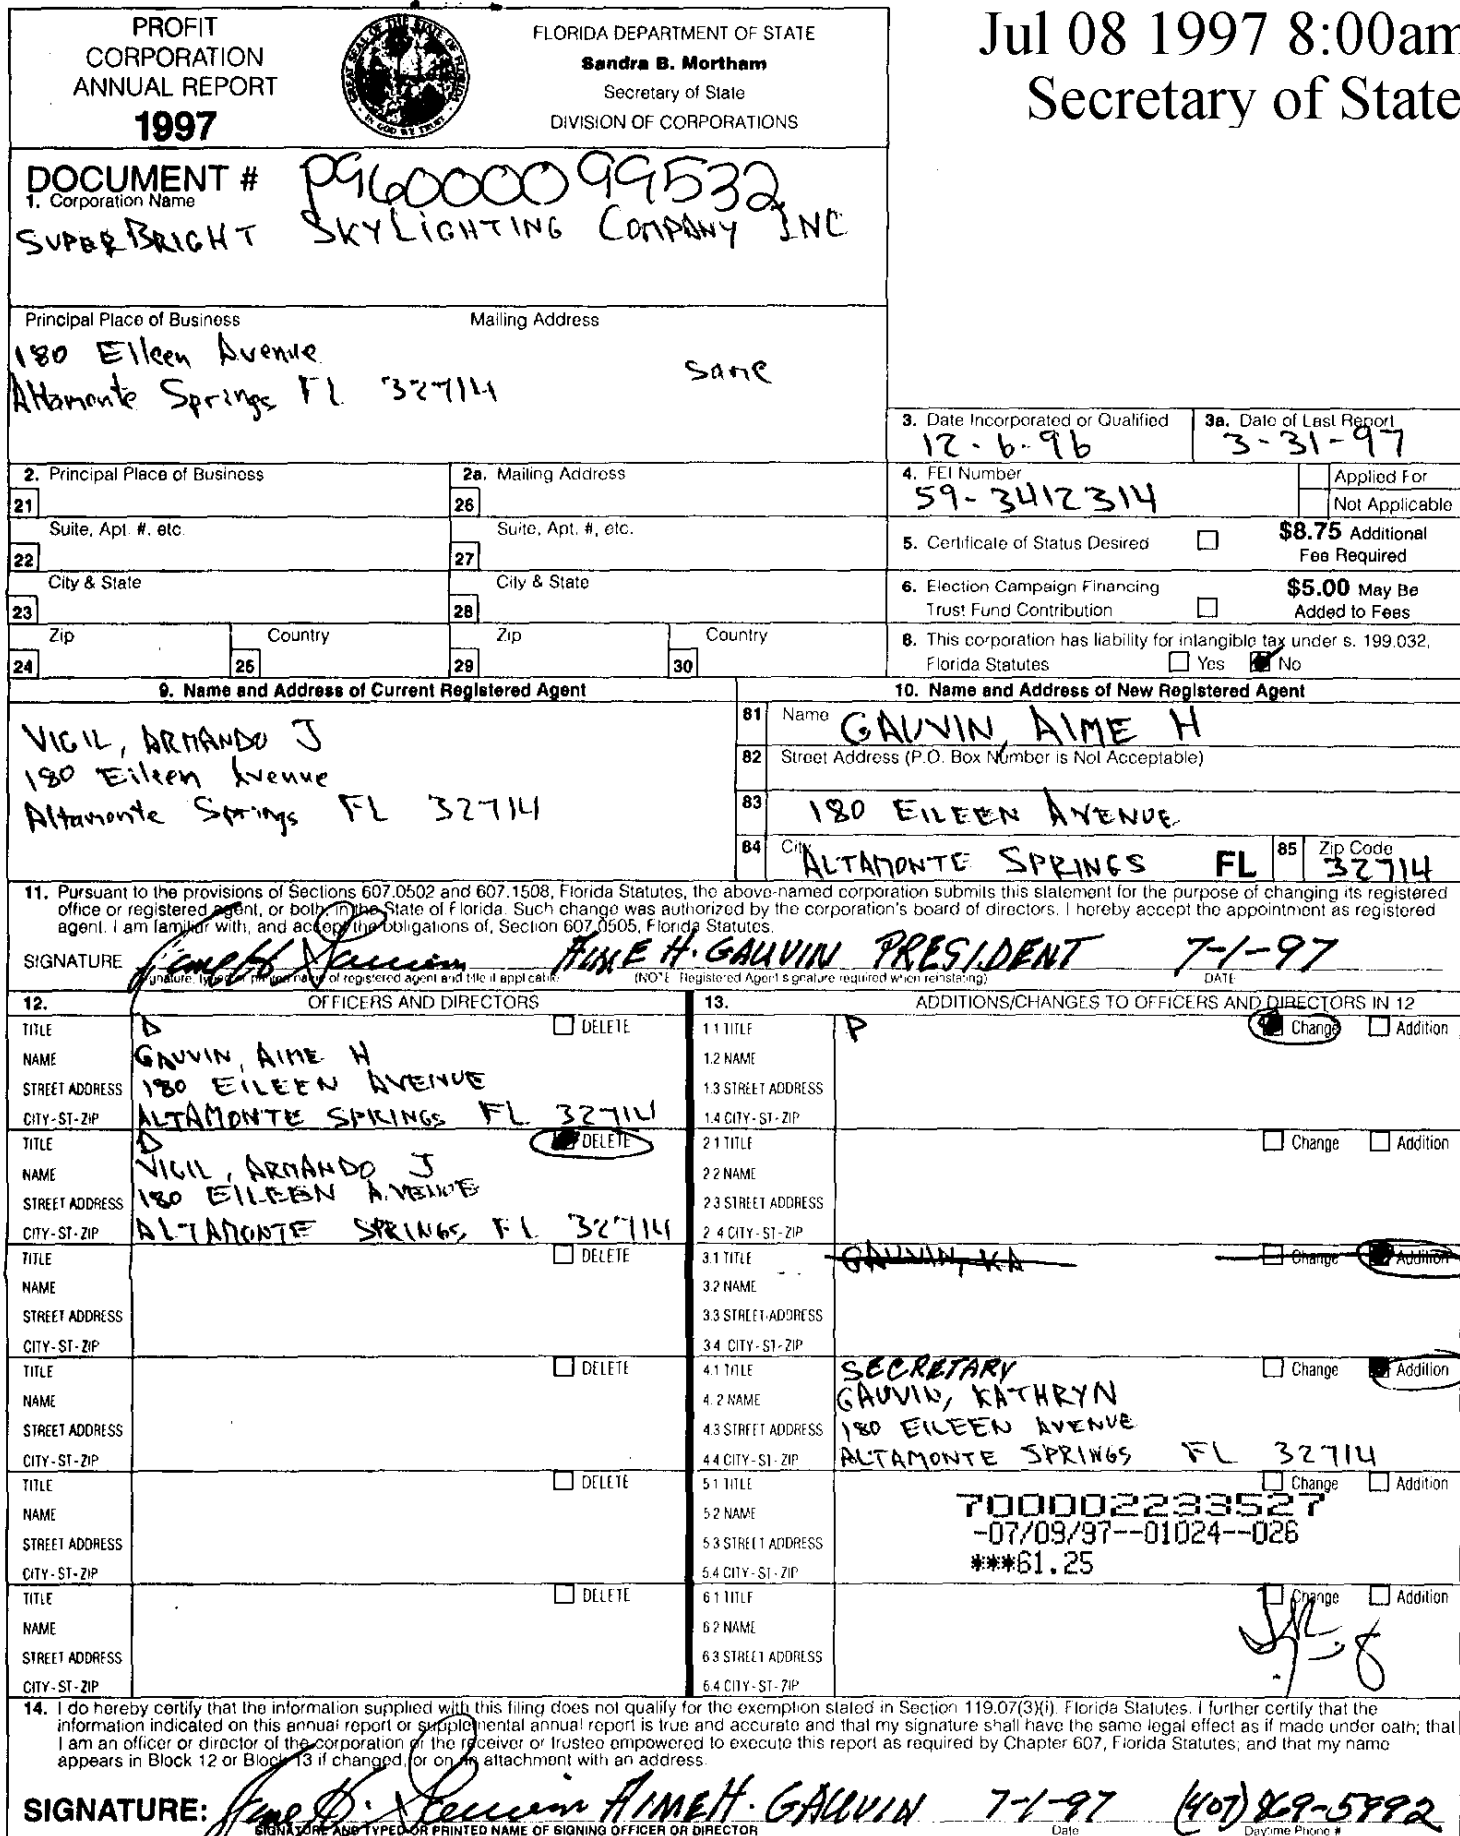 PROFIT
CORPORATION
ANNUAL REPORT
1997
FLORIDA DEPARTMENT OF STATE
Sandra B. Mortham
Secretary of State
DIVISION OF CORPORATIONS
Jul 08 1997 8:00am
Secretary of State
DOCUMENT # P96000099532
1. Corporation Name
SUPERBRIGHT SKYLIGHTING COMPANY INC
Principal Place of Business Mailing Address
180 Eileen Avenue
Altamonte Springs FL 32714
same
3. Date Incorporated or Qualified
12-6-96
3a. Date of Last Report
3-31-97
2. Principal Place of Business
21
2a. Mailing Address
26
4. FEI Number
59-3412314
Applied For
Not Applicable
Suite, Apt. #, etc.
22
Suite, Apt. #, etc.
27
5. Certificate of Status Desired
$8.75 Additional
Fee Required
City & State
23
City & State
28
6. Election Campaign Financing
Trust Fund Contribution
$5.00 May Be
Added to Fees
Zip
24
Country
25
Zip
29
Country
30
8. This corporation has liability for intangible tax under s. 199.032,
Florida Statutes Yes No
9. Name and Address of Current Registered Agent
VIGIL, ARMANDO J
180 Eileen Avenue
Altamonte Springs FL 32714
10. Name and Address of New Registered Agent
81 Name GAUVIN, AIME H
82 Street Address (P.O. Box Number is Not Acceptable)
83 180 EILEEN AVENUE
84 City ALTAMONTE SPRINGS FL 85 Zip Code 32714
11. Pursuant to the provisions of Sections 607.0502 and 607.1508, Florida Statutes, the above-named corporation submits this statement for the purpose of changing its registered
office or registered agent, or both, in the State of Florida. Such change was authorized by the corporation's board of directors. I hereby accept the appointment as registered
agent. I am familiar with, and accept the obligations of, Section 607.0505, Florida Statutes.
SIGNATURE Aime H. Gauvin AIME H. GAUVIN PRESIDENT 7-1-97
Signature, typed or printed name of registered agent and title if applicable (NOTE Registered Agent signature required when reinstating) DATE
12. OFFICERS AND DIRECTORS
13. ADDITIONS/CHANGES TO OFFICERS AND DIRECTORS IN 12
TITLE D DELETE
NAME GAUVIN, AIME H
STREET ADDRESS 180 EILEEN AVENUE
CITY-ST-ZIP ALTAMONTE SPRINGS FL 32714
1.1 TITLE P Change Addition
1.2 NAME
1.3 STREET ADDRESS
1.4 CITY-ST-ZIP
TITLE D DELETE
NAME VIGIL, ARMANDO J
STREET ADDRESS 180 EILEEN AVENUE
CITY-ST-ZIP ALTAMONTE SPRINGS, FL 32714
2.1 TITLE Change Addition
2.2 NAME
2.3 STREET ADDRESS
2.4 CITY-ST-ZIP
TITLE DELETE
NAME
STREET ADDRESS
CITY-ST-ZIP
3.1 TITLE GAUVIN, KA Change Addition
3.2 NAME
3.3 STREET ADDRESS
3.4 CITY-ST-ZIP
TITLE DELETE
NAME
STREET ADDRESS
CITY-ST-ZIP
4.1 TITLE SECRETARY Change Addition
4.2 NAME GAUVIN, KATHRYN
4.3 STREET ADDRESS 180 EILEEN AVENUE
4.4 CITY-ST-ZIP ALTAMONTE SPRINGS FL 32714
TITLE DELETE
NAME
STREET ADDRESS
CITY-ST-ZIP
5.1 TITLE Change Addition
5.2 NAME
5.3 STREET ADDRESS
5.4 CITY-ST-ZIP
700002233527
-07/09/97--01024--026
***61.25
TITLE DELETE
NAME
STREET ADDRESS
CITY-ST-ZIP
6.1 TITLE Change Addition
6.2 NAME
6.3 STREET ADDRESS
6.4 CITY-ST-ZIP
14. I do hereby certify that the information supplied with this filing does not qualify for the exemption stated in Section 119.07(3)(i), Florida Statutes. I further certify that the
information indicated on this annual report or supplemental annual report is true and accurate and that my signature shall have the same legal effect as if made under oath; that
I am an officer or director of the corporation or the receiver or trustee empowered to execute this report as required by Chapter 607, Florida Statutes; and that my name
appears in Block 12 or Block 13 if changed, or on an attachment with an address.
SIGNATURE: Aime H. Gauvin AIME H. GAUVIN 7-1-97 (407) 869-5992
SIGNATURE AND TYPED OR PRINTED NAME OF SIGNING OFFICER OR DIRECTOR Date Daytime Phone #